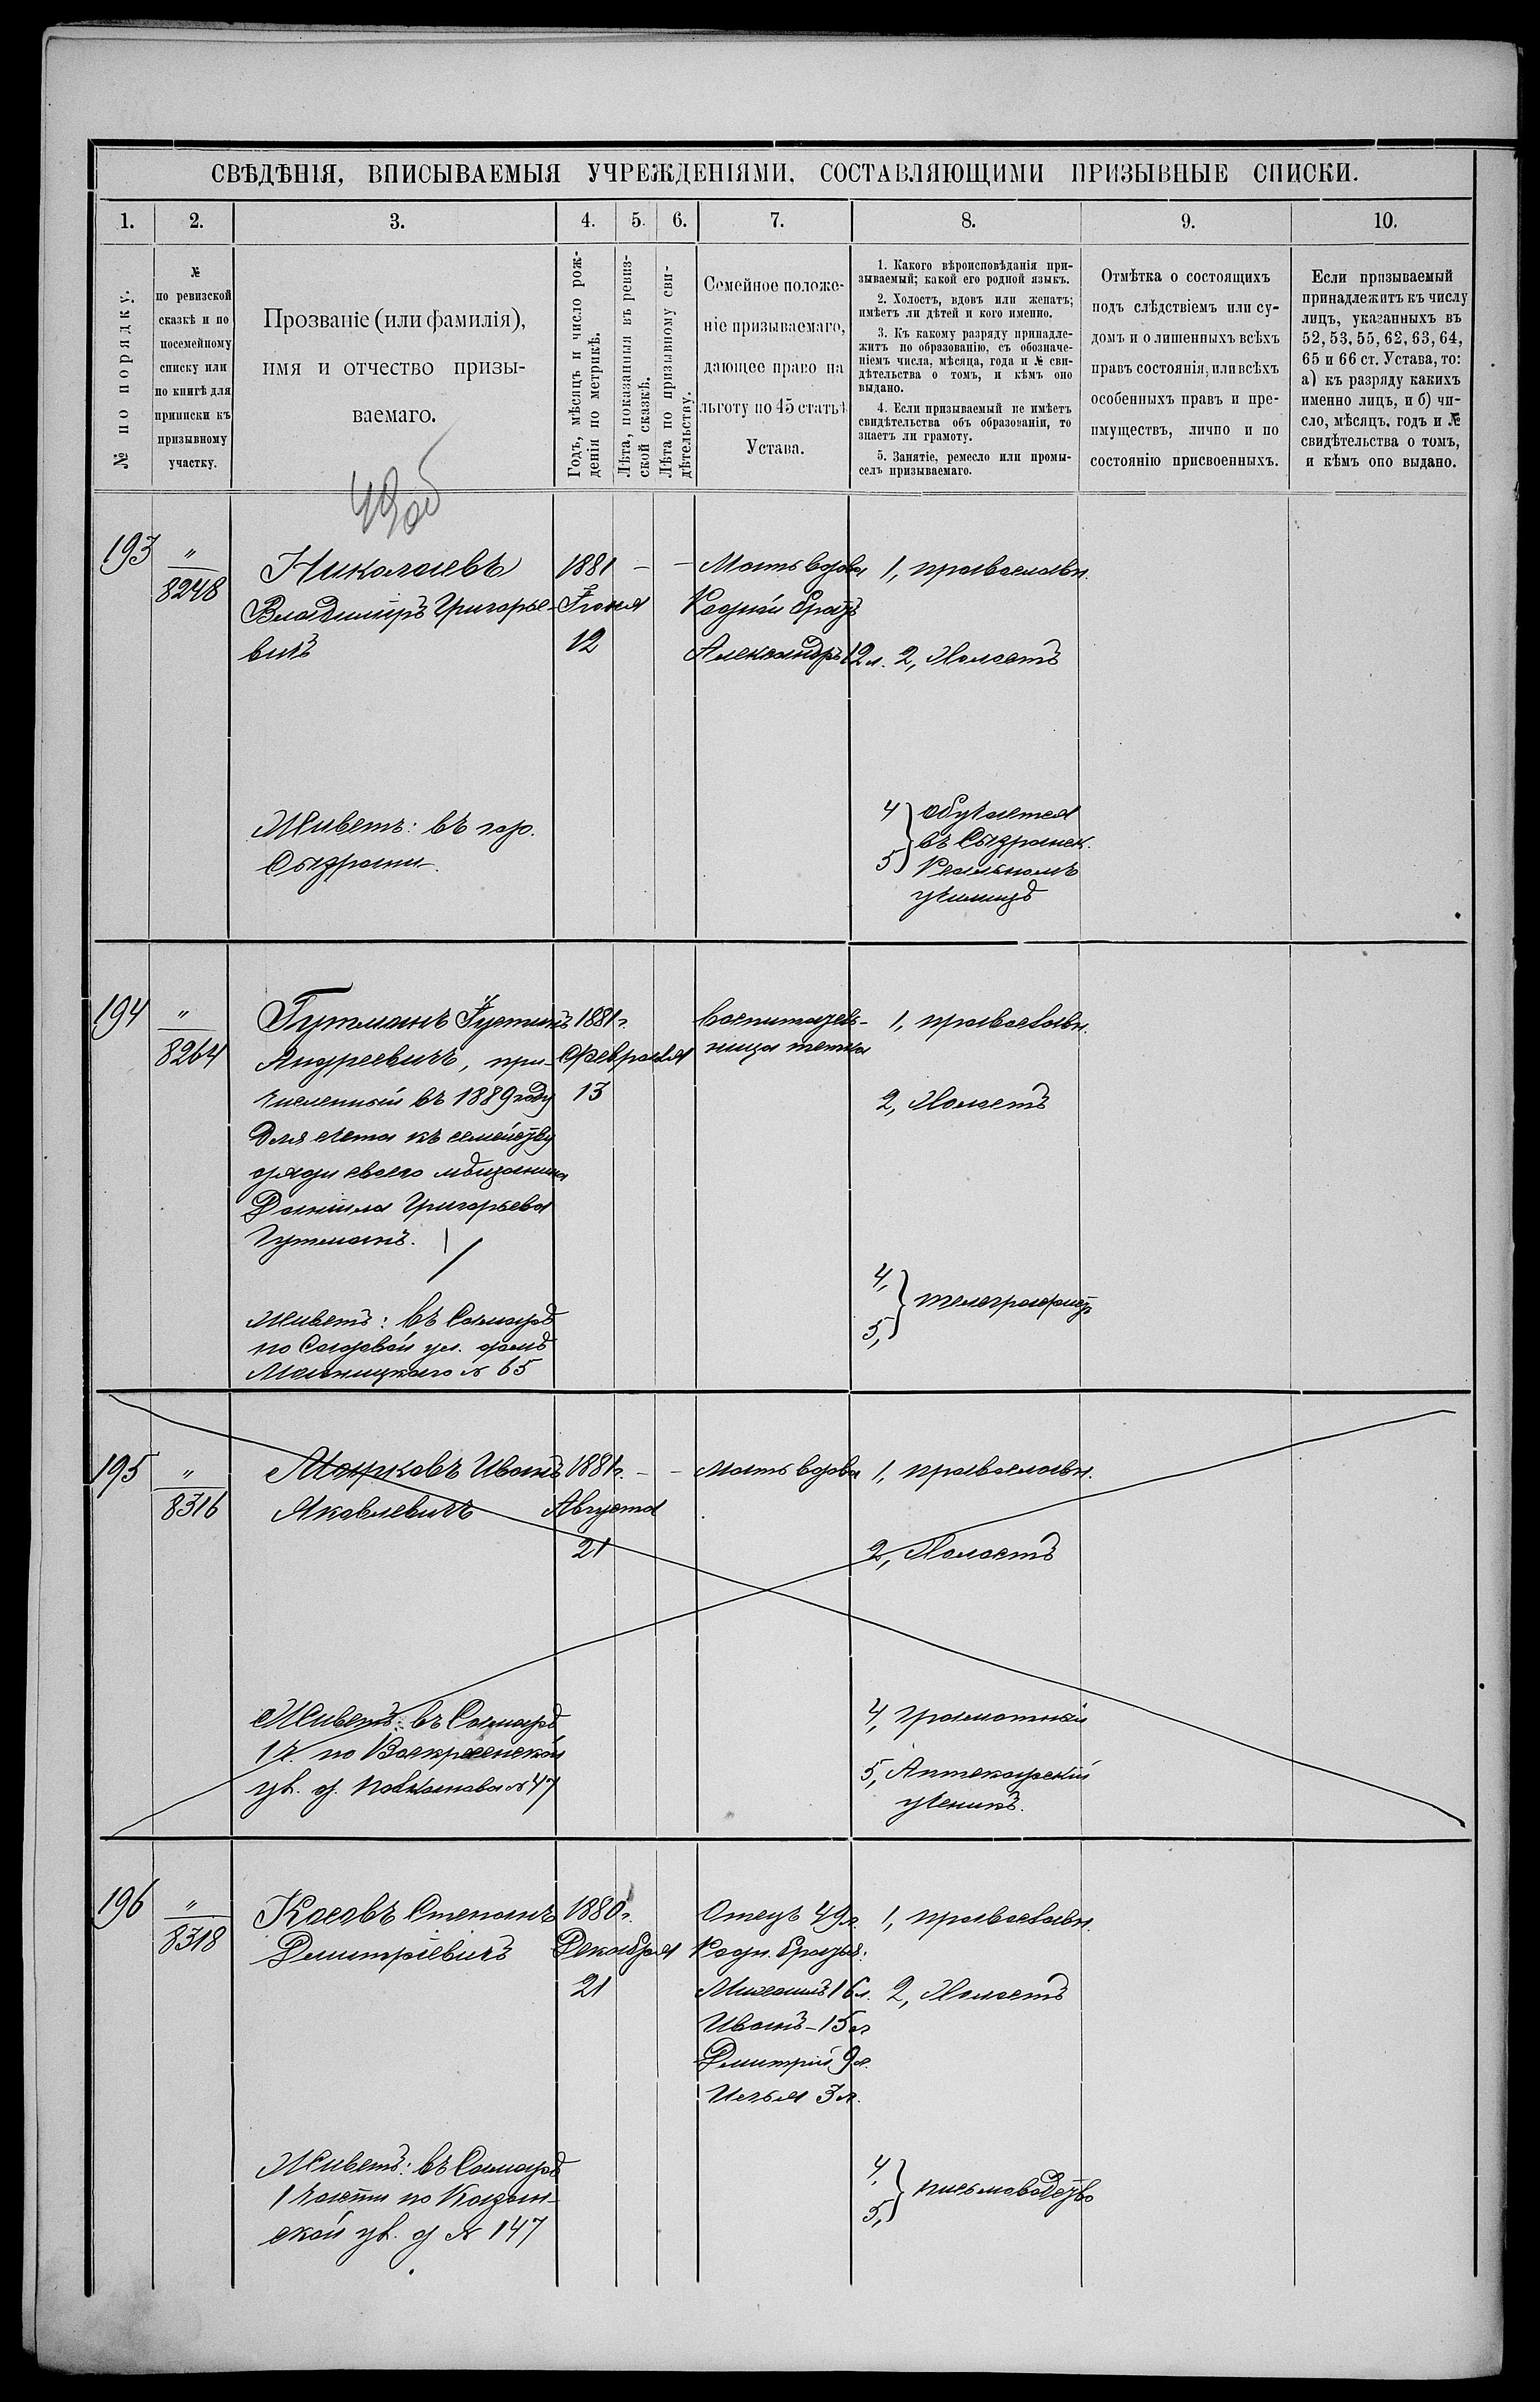 СВѢДѢНІЯ, ВПИСЫВАЕМЫЯ УЧРЕЖДЕНІЯМИ, СОСТАВЛЯЮЩИМИ ПРИЗЫВНЫЕ СПИСКИ.
1.
2.
3.
4.
5.
6.
7.
8.
9.
10.
№ по порядку.
№
по ревизской
сказкѣ и по
посемейному
списку или
по книгѣ для
приписки къ
призывному
участку.
Прозваніе (или фамилія),
имя и отчество призы-
ваемаго.
Годъ, мѣсяцъ и число рож-
денія по метрикѣ.
Лѣта, показанныя въ ревиз-
ской сказкѣ.
Лѣта по призывному сви-
дѣтельству.
Семейное положе-
ніе призываемаго,
дающее право на
льготу по 45 статьѣ
Устава.
1. Какого вѣроисповѣданія при-
зываемый; какой его родной языкъ.
2. Холостъ, вдовъ или женатъ;
имѣетъ ли дѣтей и кого именно.
3. Къ какому разряду принадле-
житъ по образованію, съ обозначе-
ніемъ числа, мѣсяца, года и № сви-
дѣтельства о томъ, и кѣмъ оно
выдано.
4. Если призываемый не имѣетъ
свидѣтельства объ образованіи, то
знаетъ ли грамоту.
5. Занятіе, ремесло или промы-
селъ призываемаго.
Отмѣтка о состоящихъ
подъ слѣдствіемъ или су-
домъ и о лишенныхъ всѣхъ
правъ состоянія, или всѣхъ
особенныхъ правъ и пре-
имуществъ, лично и по
состоянію присвоенныхъ.
Если призываемый
принадлежитъ къ числу
лицъ, указанныхъ въ
52, 53, 55, 62, 63, 64,
65 и 66 ст. Устава, то:
а) къ разряду какихъ
именно лицъ, и б) чи-
сло, мѣсяцъ, годъ и №
свидѣтельства о томъ,
и кѣмъ оно выдано.
193
"
8248
Николаевъ
Владиміръ Григорье-
вичъ
Живетъ: въ гор.
Сызрани.
1881 - -
Іюня
12
Мать вдова
Родной братъ
Александръ 12 л.
1, православн.
2, Холостъ
4
5
обучается
въ Сызранск.
Реальномъ
училищѣ
194
"
8264
Гутманъ Іустинъ
Андреевичъ, при-
численный въ 1889 году
для счета къ семейству
дяди своего мѣщанина
Даніила Григорьева
Гутманъ.
Живетъ: въ Самарѣ
по Садовой ул. домъ
№ 65
1881 г.
Февраля
13
Воспитатель-
ница тетка
1, православн.
2, Холостъ
4,
5,
телеграфистъ
195
"
8316
Марковъ Иванъ
Яковлевичъ
Живетъ: въ Самарѣ
1 ч. по Воскресенской
ул. д. № 47
1881 г. - -
Августа
21
Мать вдова
1, православн.
2, Холостъ
4, грамотный
5, Аптекарскій
ученикъ.
196
"
8318
Косовъ Степанъ
Дмитріевичъ
Живетъ: въ Самарѣ
1 части по Казан-
ской ул. д № 147
1880 г.
Декабря
21
Отецъ 49 л.
Родн. братья:
Михаилъ 16 л.
Иванъ - 15 л
Дмитрій 9 л.
Илья 3 л.
1, православн.
2, Холостъ
4,
5,
письмоводство